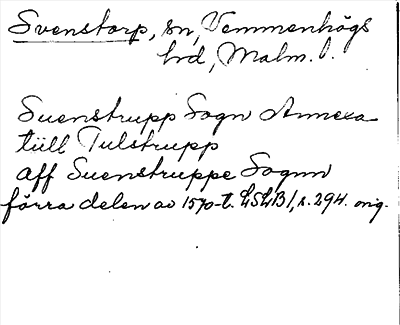 Svenstorp, sn, Vemmenhögs
hd, Malm. l.
Suenstrupp Sogn Annexa
tiill Tulstrupp
aff Suenstruppe Sognn
förra delen av 1570-t. LSLB1, s. 294. orig.